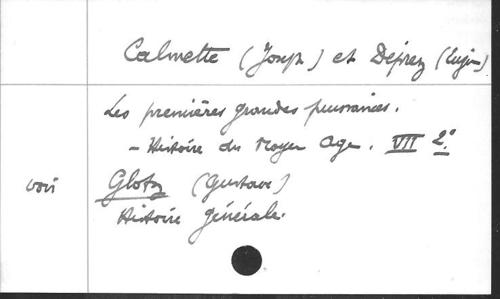 Calmette (Joseph) et Déprez (Eugène)
Les premières grandes puissances.
- Histoire du Moyen Age. VII 2°
voir Glotz (Gustave)
Histoire générale.